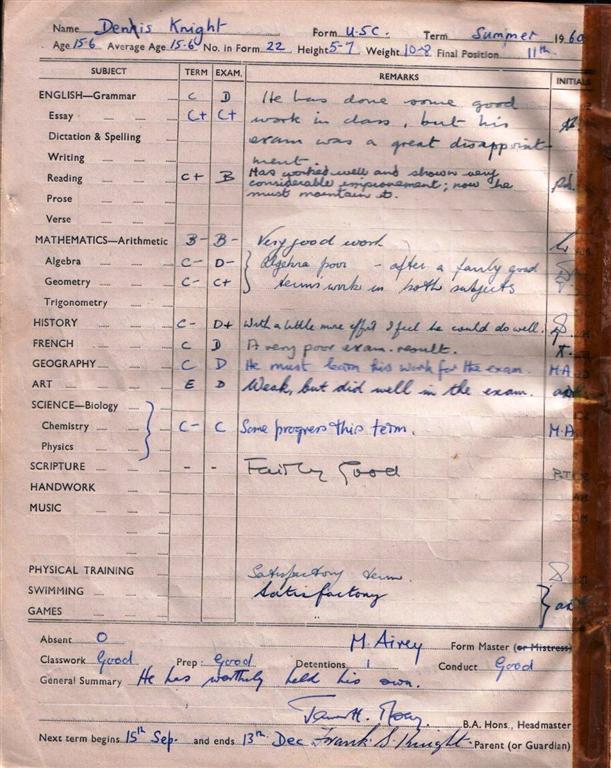 Name Dennis Knight Form U.5C. Term Summer 1960
Age 15·6 Average Age 15·6 No. in Form 22 Height 5-7 Weight 10-2 Final Position 11th
SUBJECT TERM EXAM. REMARKS INITIALS
ENGLISH—Grammar C D He has done some good
Essay C+ C+ work in class, but his
Dictation & Spelling exam was a great disappoint-
Writing ment.
Reading C+ B Has worked well and shown very
considerable improvement; now he
must maintain it.
Prose
Verse
MATHEMATICS—Arithmetic B- B- Very good work
Algebra C- D- Algebra poor - after a fairly good
Geometry C- C+ terms work in both subjects
Trigonometry
HISTORY C- D+ With a little more effort I feel he could do well.
FRENCH C D A very poor exam. result.
GEOGRAPHY C D He must learn his work for the exam. M.A.
ART E D Weak, but did well in the exam.
SCIENCE—Biology
Chemistry C- C Some progress this term. M.A.
Physics
SCRIPTURE - - Fairly Good
HANDWORK
MUSIC
PHYSICAL TRAINING Satisfactory term.
SWIMMING Satisfactory
GAMES
Absent 0 M. Airey Form Master (or Mistress)
Classwork Good Prep: Good Detentions 1 Conduct Good
General Summary He has worthily held his own.
B.A. Hons., Headmaster
Next term begins 15th Sep. and ends 13th Dec Frank S Knight Parent (or Guardian)